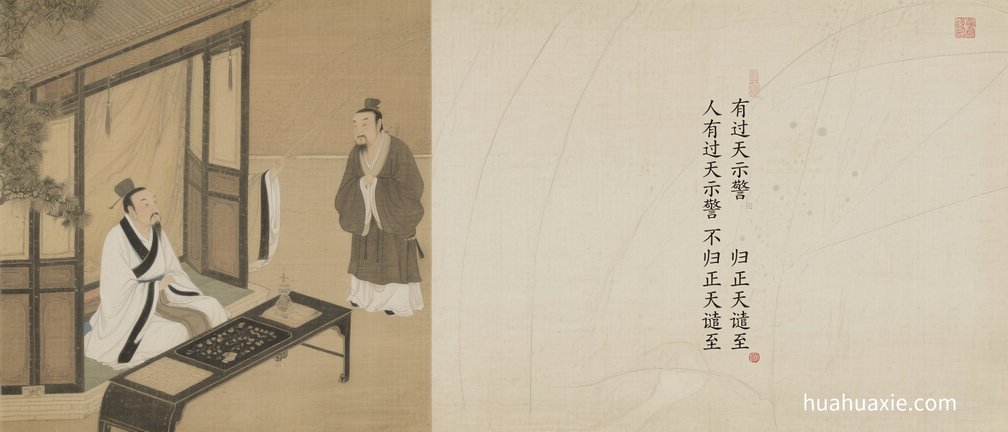 有过天示警 归正天谴至
人有过天示警 不归正天谴至
huahuaxie.com